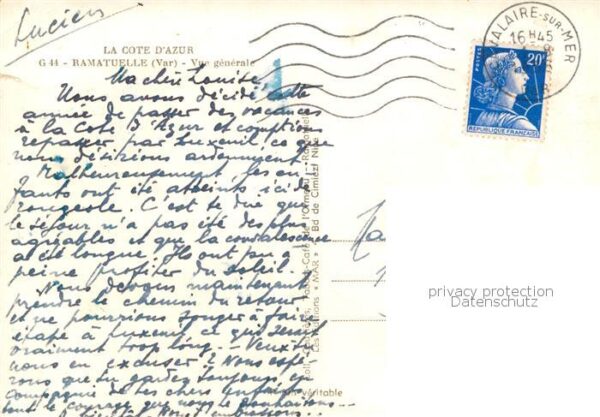 Lucien
LA COTE D'AZUR
G 44 - RAMATUELLE (Var) - Vue générale
Ma chère Louise,
Nous avons décidé cette
année de passer des vacances
à la Côte d'Azur et comptions
repasser par Luxeuil, ce que
nous désirions ardemment.
Malheureusement, les en-
fants ont été atteints ici de
rougeole. C'est te dire que
le séjour n'a pas été des plus
agréables et que la convalescence
a été longue. Ils ont pu à
peine profiter du soleil.
Nous devons maintenant
prendre le chemin du retour
et ne pourrions songer à faire
étape à Luxeuil ce qui serait
vraiment trop long. Veux-tu
nous en excuser ? Nous espé-
rons que tu gardes toujours, en
compagnie de tes chers enfants,
tout le courage que nous te souhaitons...
embrassons...
VALAIRE-SUR-MER
16 H45
POSTES
20F
REPUBLIQUE FRANÇAISE
Les Editions « MAR »
Bd de Cimiez, Nice
véritable
privacy protection
Datenschutz